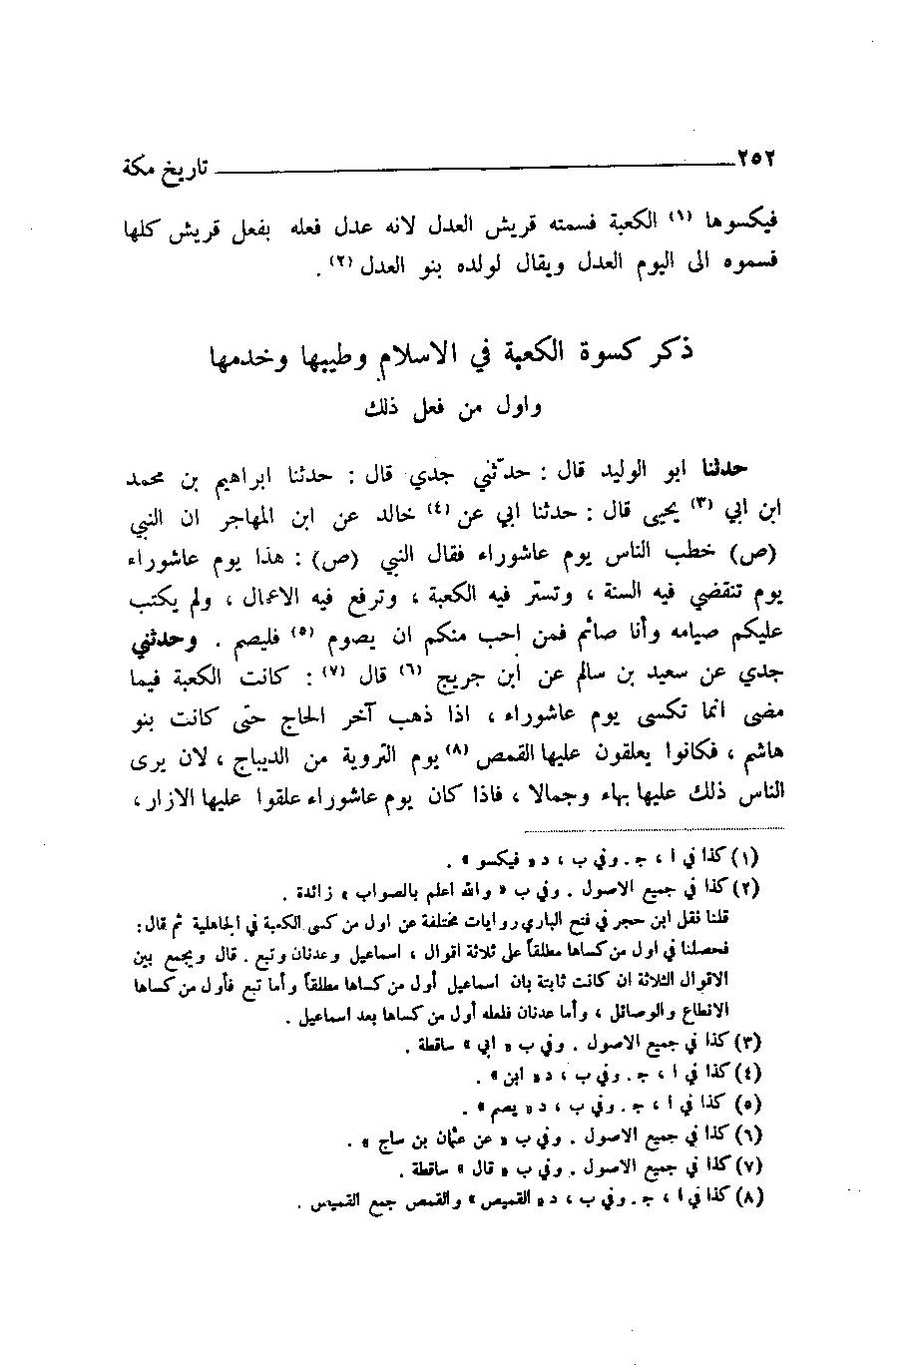 ٢٥٢ تاريخ مكة
فيكسوها (١) الكعبة فسمته قريش العدل لانه عدل فعله بفعل قريش كلها
قسموه الى اليوم العدل ويقال لولده بنو العدل (٢) .
ذكر كسوة الكعبة في الاسلام وطيبها وخدمها
واول من فعل ذلك
حدثنا ابو الوليد قال : حدّثني جدي قال : حدثنا ابراهيم بن محمد
ابن ابي (٣) يحيى قال : حدثنا ابي عن (٤) خالد عن ابن المهاجر ان النبي
(ص) خطب الناس يوم عاشوراء فقال النبي (ص) : هذا يوم عاشوراء
يوم تنقضي فيه السنة ، وتستّر فيه الكعبة ، وترفع فيه الاعمال ، ولم يكتب
عليكم صيامه وأنا صائم فمن احب منكم ان يصوم (٥) فليصم . وحدثني
جدي عن سعيد بن سالم عن ابن جريج (٦) قال (٧) : كانت الكعبة فيما
مضى انما تكسى يوم عاشوراء ، اذا ذهب آخر الحاج حتى كانت بنو
هاشم ، فكانوا يعلقون عليها القمص (٨) يوم التروية من الديباج ، لان يرى
الناس ذلك عليها بهاء وجمالا ، فاذا كان يوم عاشوراء علقوا عليها الازار ،
(١) كذا في ا ، ج . وفي ب ، د « فيكسو » .
(٢) كذا في جميع الاصول . وفي ب « والله اعلم بالصواب » زائدة .
قلنا نقل ابن حجر في فتح الباري روايات مختلفة عن اول من كسى الكعبة في الجاهلية ثم قال :
فحصلنا في اول من كساها مطلقاً على ثلاثة اقوال ، اسماعيل وعدنان وتبع . قال ويجمع بين
الاقوال الثلاثة ان كانت ثابتة بان اسماعيل أول من كساها مطلقاً وأما تبع فأول من كساها
الانطاع والوصائل ، وأما عدنان فلعله أول من كساها بعد اسماعيل .
(٣) كذا في جميع الاصول . وفي ب « ابي » ساقطة .
(٤) كذا في ا ، ج . وفي ب ، د « ابن » .
(٥) كذا في ا ، ج . وفي ب ، د « يصم » .
(٦) كذا في جميع الاصول . وفي ب « عن عثمان بن ساج » .
(٧) كذا في جميع الاصول . وفي ب « قال » ساقطة .
(٨) كذا في ا ، ج . وفي ب ، د « القميص » والقمص جمع القميص .